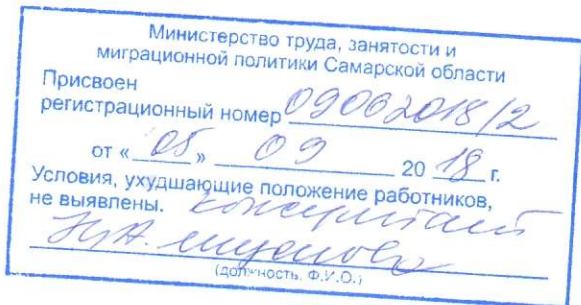 Министерство труда, занятости и
миграционной политики Самарской области
Присвоен
регистрационный номер 09062018/2
от « 05 » 09 20 18 г.
Условия, ухудшающие положение работников,
не выявлены. консультант
(должность, Ф.И.О.)